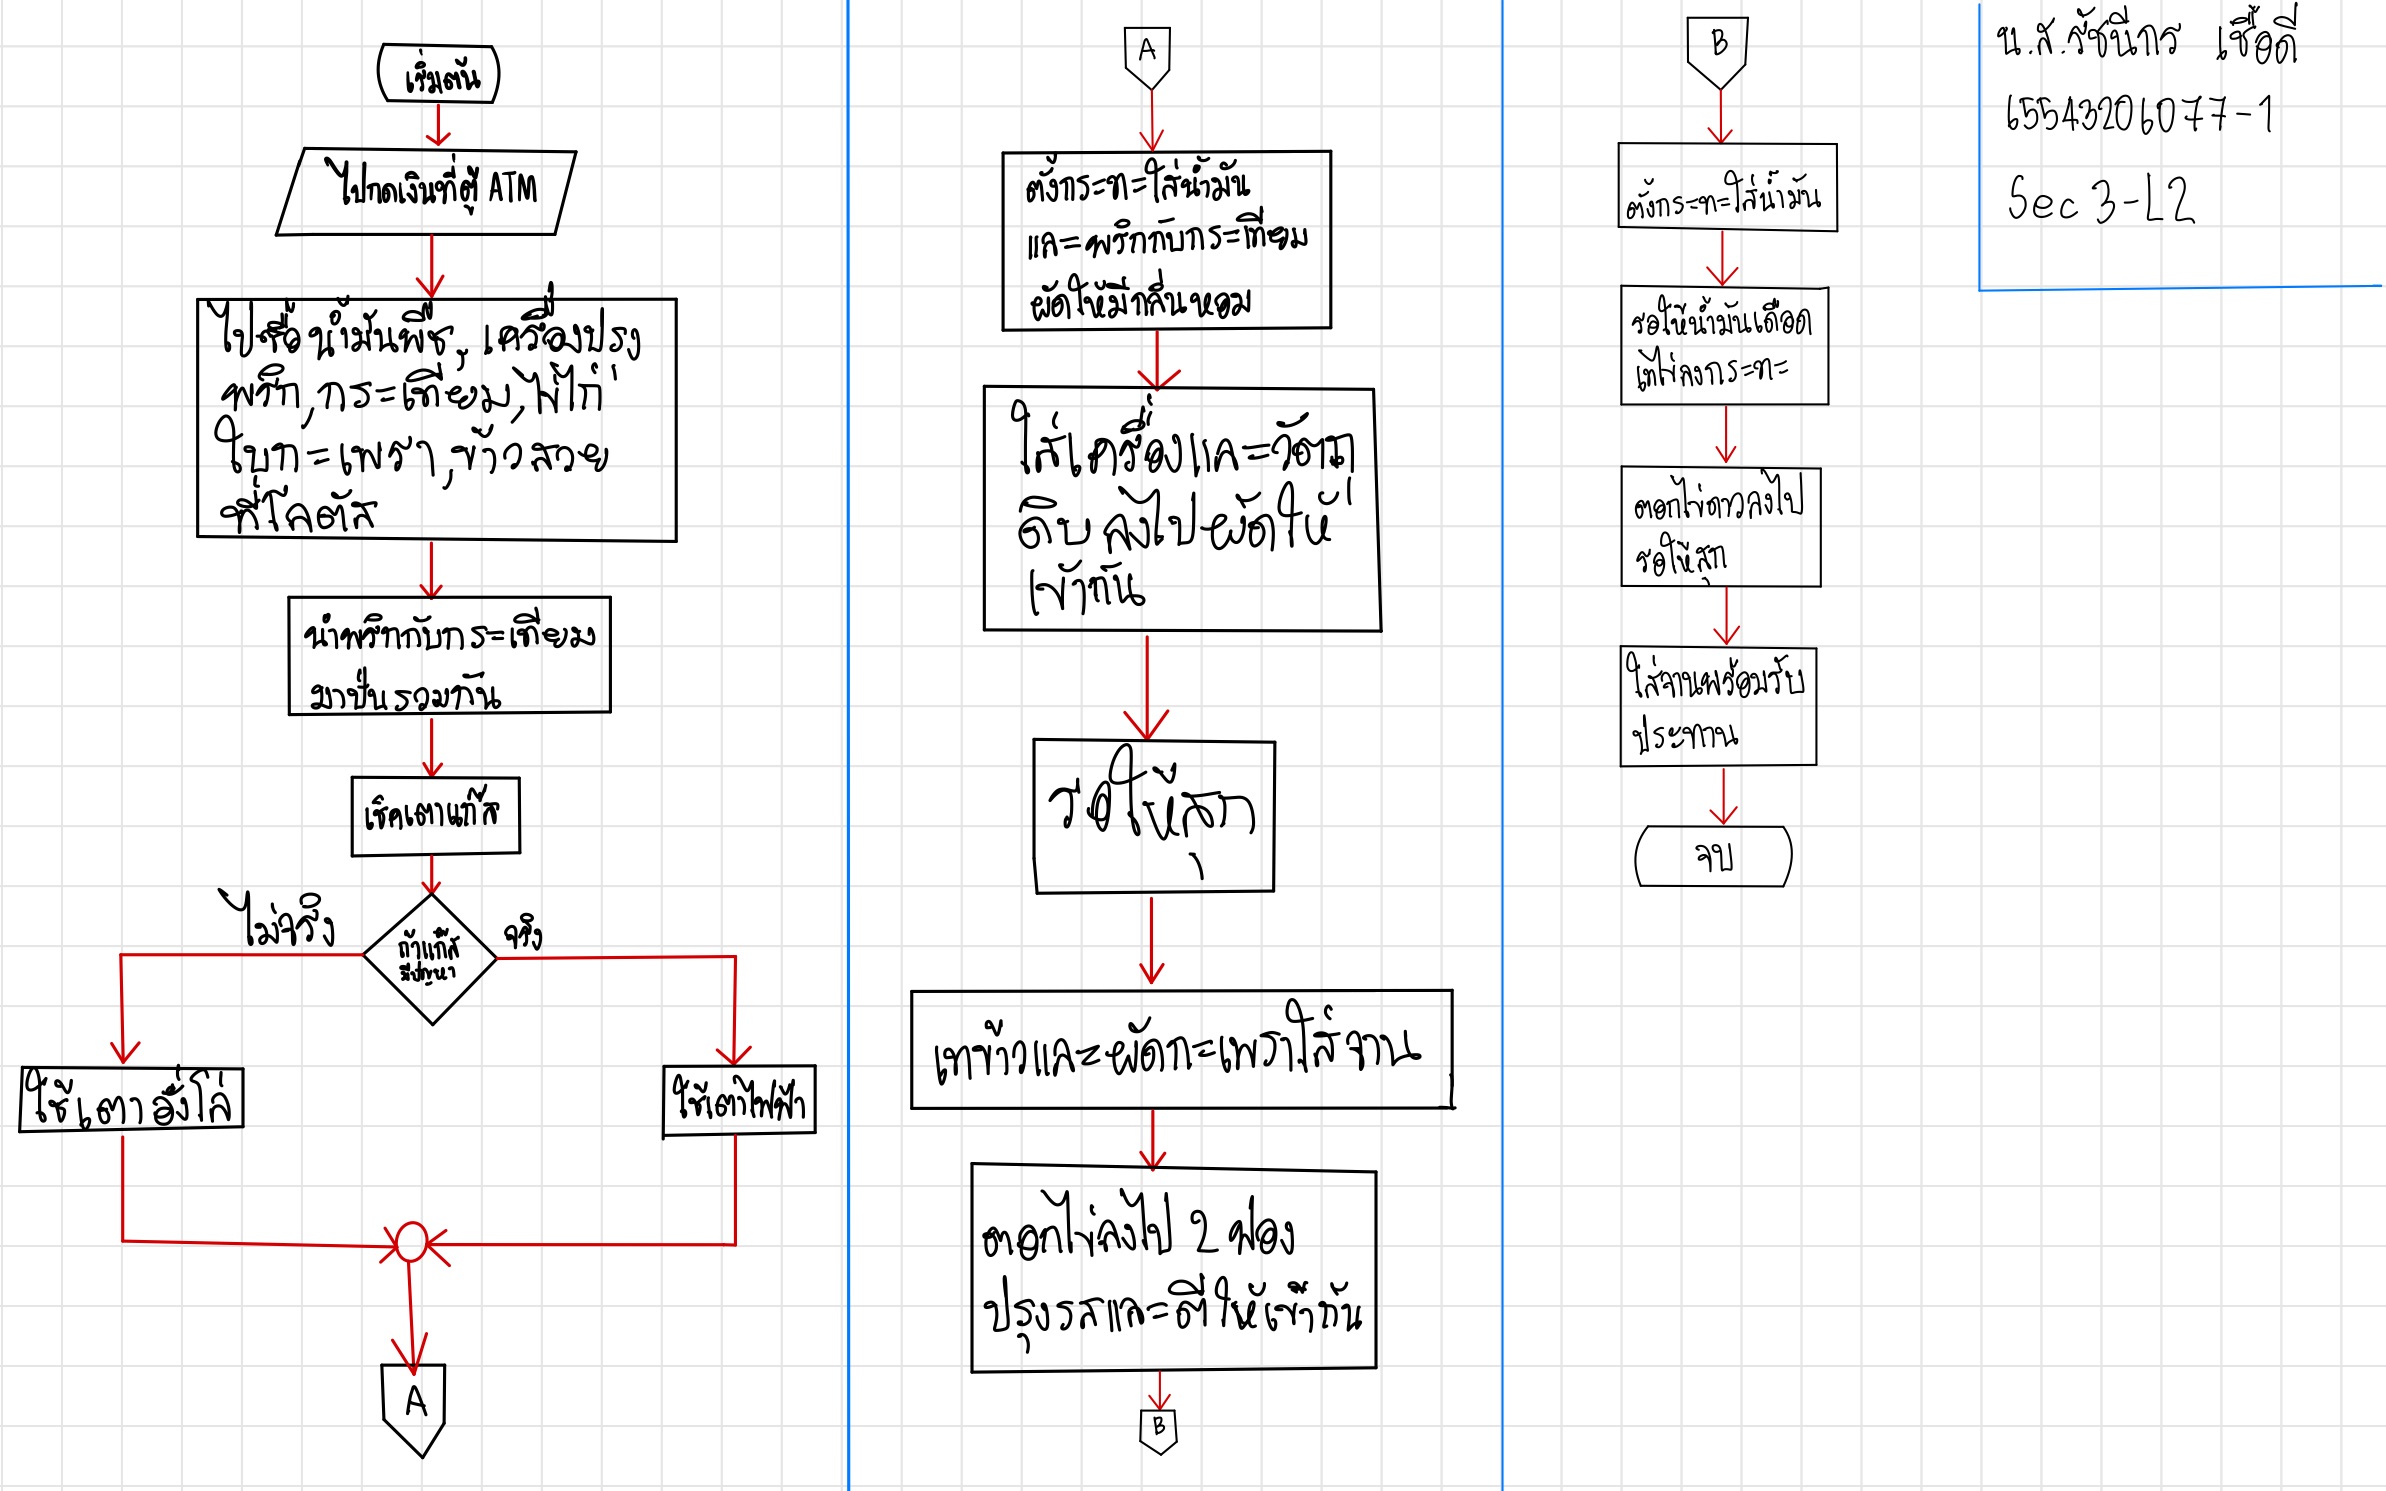 เริ่มต้น
ไปกดเงินที่ตู้ ATM
ไปซื้อน้ำมันพืช, เครื่องปรุง
พริก,กระเทียม,ไข่ไก่
ใบกะเพรา,ข้าวสวย
ที่โลตัส
นำพริกกับกระเทียม
มาปั่นรวมกัน
เช็คเตาแก๊ส
ไม่จริง
จริง
ถ้าแก๊ส
มีปัญหา
ใช้เตาอั้งโล่
ใช้เตาไฟฟ้า
A
A
ตั้งกระทะใส่น้ำมัน
และพริกกับกระเทียม
ผัดให้มีกลิ่นหอม
ใส่เครื่องและวัตถุ
ดิบลงไปผัดให้
เข้ากัน
รอให้สุก
เทข้าวและผัดกะเพราใส่จาน
ตอกไข่ลงไป 2 ฟอง
ปรุงรสและตีให้เข้ากัน
B
B
ตั้งกระทะใส่น้ำมัน
รอให้น้ำมันเดือด
เทไข่ลงกระทะ
ตอกไข่ดาวลงไป
รอให้สุก
ใส่จานพร้อมรับ
ประทาน
จบ
น.ส.รัชนีกร เชื้อดี
65543206077-1
Sec 3-L2